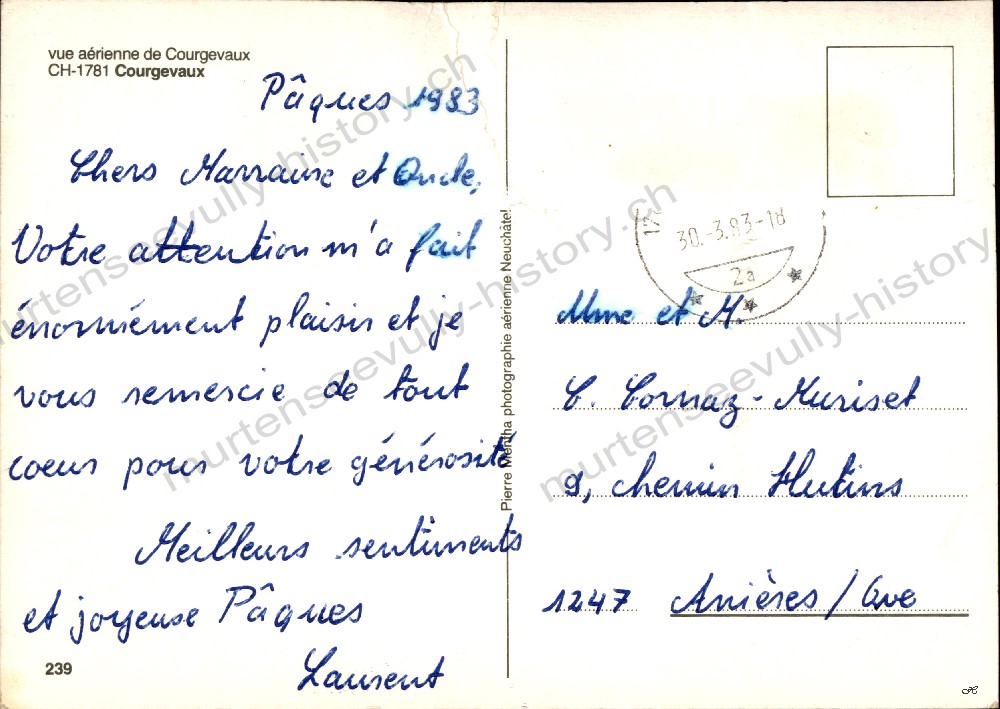 vue aérienne de Courgevaux
CH-1781 Courgevaux
Pâques 1983
Chers Marraine et Oncle,
Votre attention m'a fait
énormément plaisir et je
vous remercie de tout
coeur pour votre générosité
Meilleurs sentiments
et joyeuse Pâques
Laurent
239
Pierre Mentha photographie aérienne Neuchâtel
30.-3.83-18
2a
Mme et M.
C. Cornaz-Muriset
9, chemin Hutins
1247 Anières/Gve
murtenseevully-history.ch
murtenseevully-history.ch
murtenseevully-history.ch